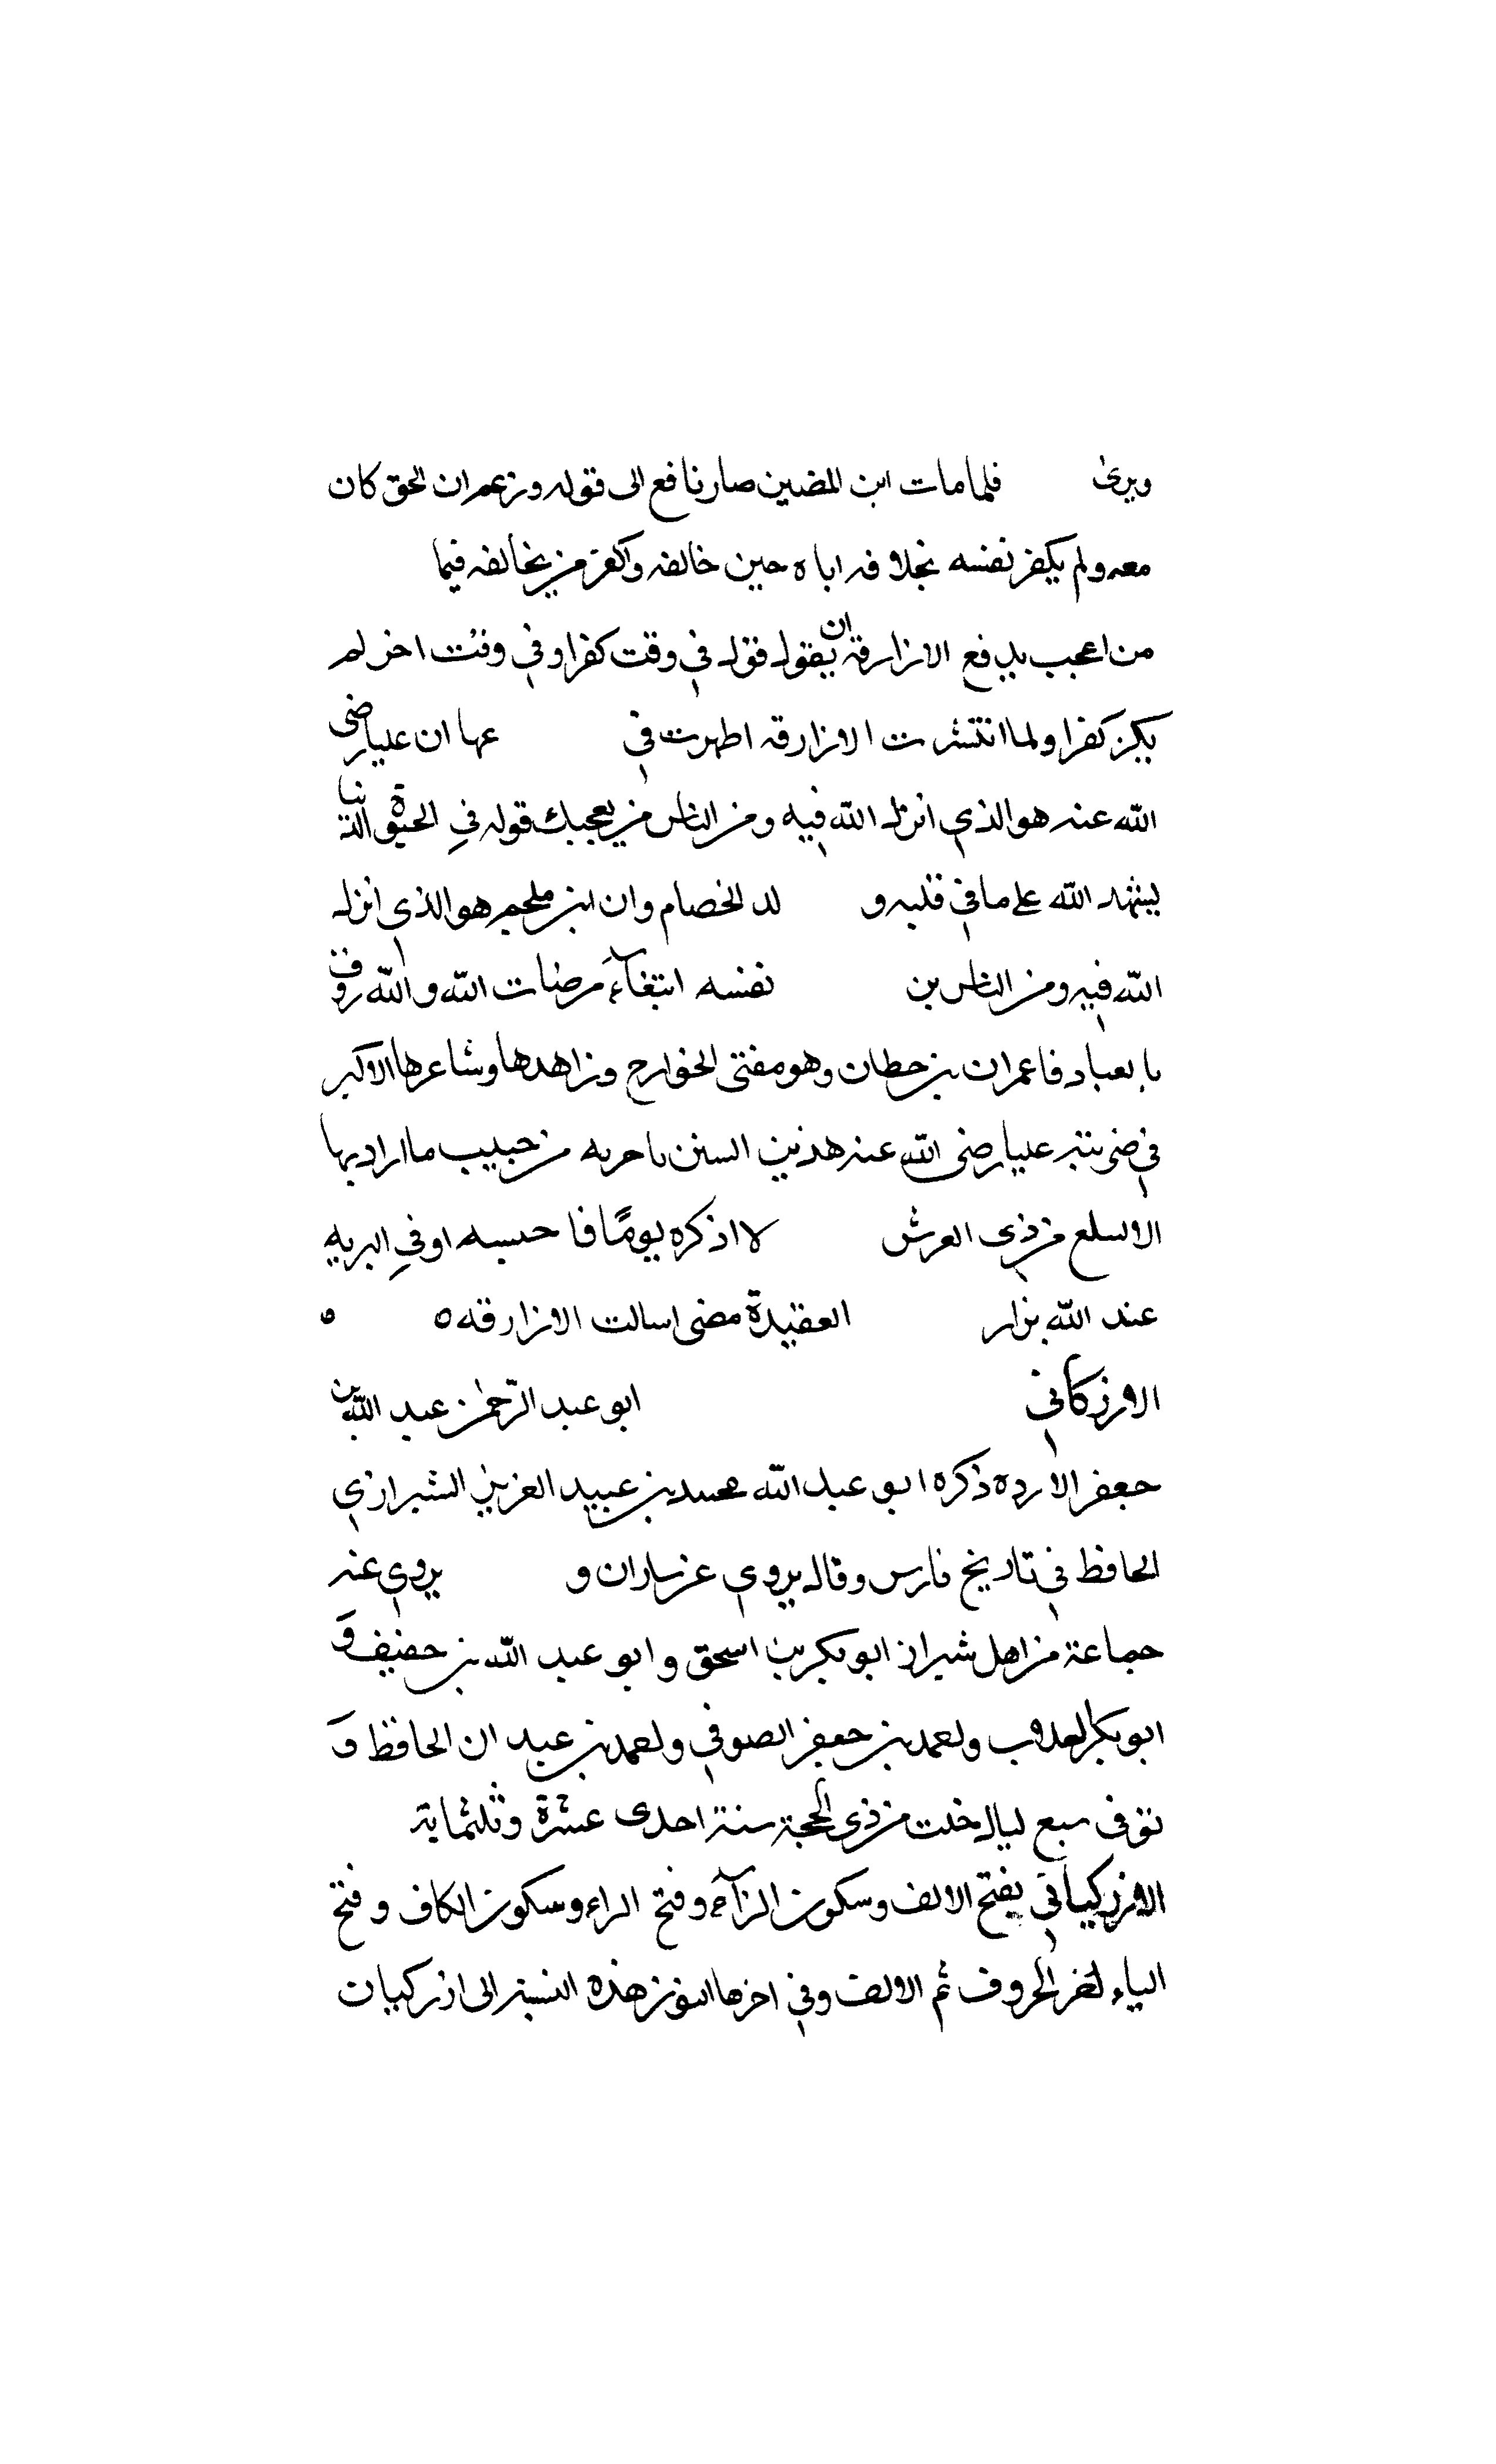 ويرى فلما مات ابن المضين صار نافع الى قوله وزعم ان الحق كان
معه ولم يكفر نفسه بخلافه اياه حين خالفه واكفر من يخالفه فيما
من اعجب بدفع الازارقة ان يقول قوله في وقت كفرا وفي وقت اخر لم
يكن كفرا ولما انتشرت الازارقه اظهرت في عها ان عليا رضى
الله عنه هو الذي انزل الله فيه ومن الناس من يعجبك قوله في الحيوة الدنيا
يشهد الله على ما في قلبه و لد الخصام وان ابن ملجم هو الذي انزل
الله فيه ومن الناس من نفسه ابتغآء مرضات الله والله روف
بالعباد فاعمران بن حطان وهو مفتى الخوارج وزاهدها وشاعرها الاكبر
في عليا رضى الله عنه هذين ما اراد بها
الا من ذى العرش لا اذكره يومًا فاحسبه اوفي البريه
عند الله العقيدة مضى الازارقه ه ه
الارزكاني ابو عبد الرّحمٰن عبد الله بن
جعفر ذكره ابو عبد الله محمد بن عبيد العزيز الشيرازي
الحافظ في تاريخ فارس وقال يروي عن و يروي عنه
جماعة من اهل شيراز ابو بكر بن اسحق وابو عبد الله بن حفيف وَ
ابو بكر بن جعفر الصوفي بن عبدان الحافظ وَ
توفى سبع ليال خلت من ذى الحجة سنة احدى عشرة وثلثماية
الازركياني بفتح الالف وسكون الزآء وفتح الراء وسكون الكاف وفتح
الياء الحروف ثم الالف وفي اخرها النون هذه النسبة الى ازركيان